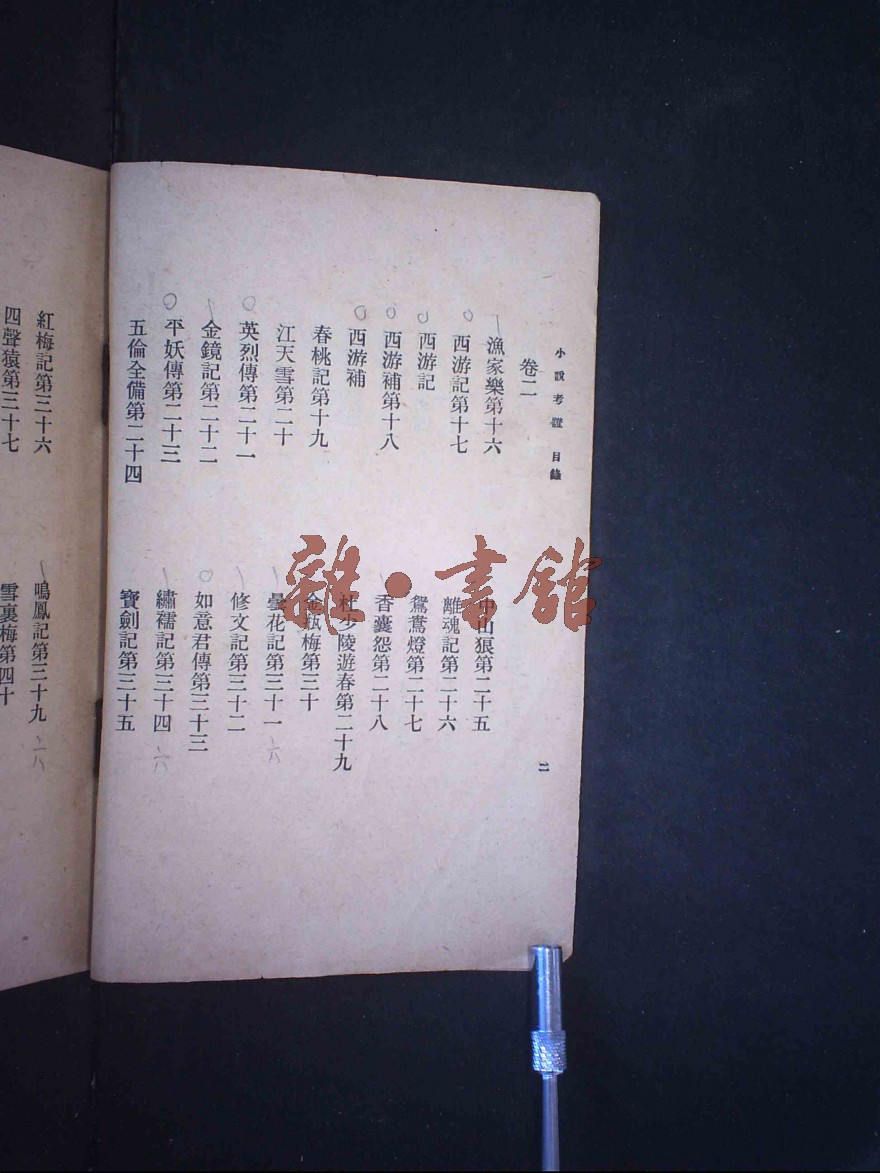 小說考證 目錄
二
卷二
漁家樂第十六
西游記第十七
西游記
西游補第十八
西游補
春桃記第十九
江天雪第二十
英烈傳第二十一
金鏡記第二十二
平妖傳第二十三
五倫全備第二十四
中山狼第二十五
離魂記第二十六
鴛鴦燈第二十七
香囊怨第二十八
杜少陵遊春第二十九
金瓶梅第三十
曇花記第三十一 六
修文記第三十二
如意君傳第三十三
繡襦記第三十四 六
寶劍記第三十五
紅梅記第三十六
四聲猿第三十七
鳴鳳記第三十九 六
雪裏梅第四十
雜·書館